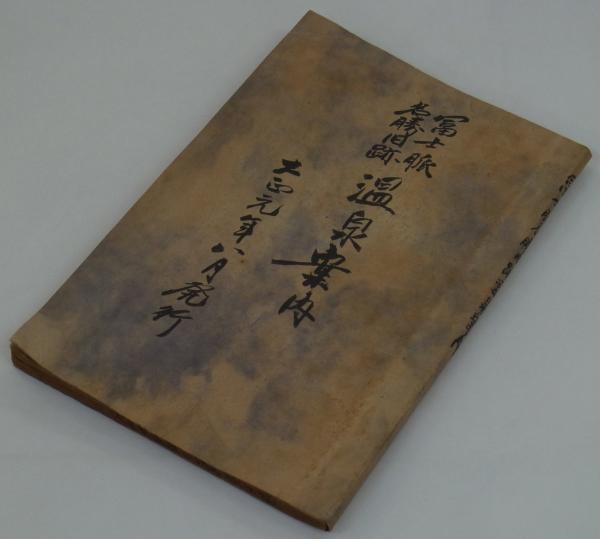 冨士脈
名勝旧跡
温泉案内
大正元年八月発行